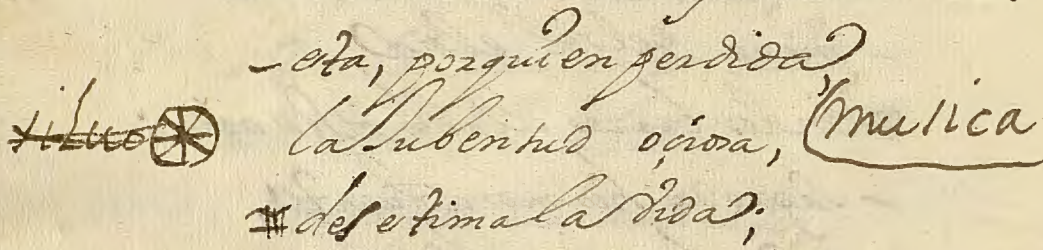 - esta, por quien perdida,
silvio la Jubentud oçiosa, musica
desestima la vida;